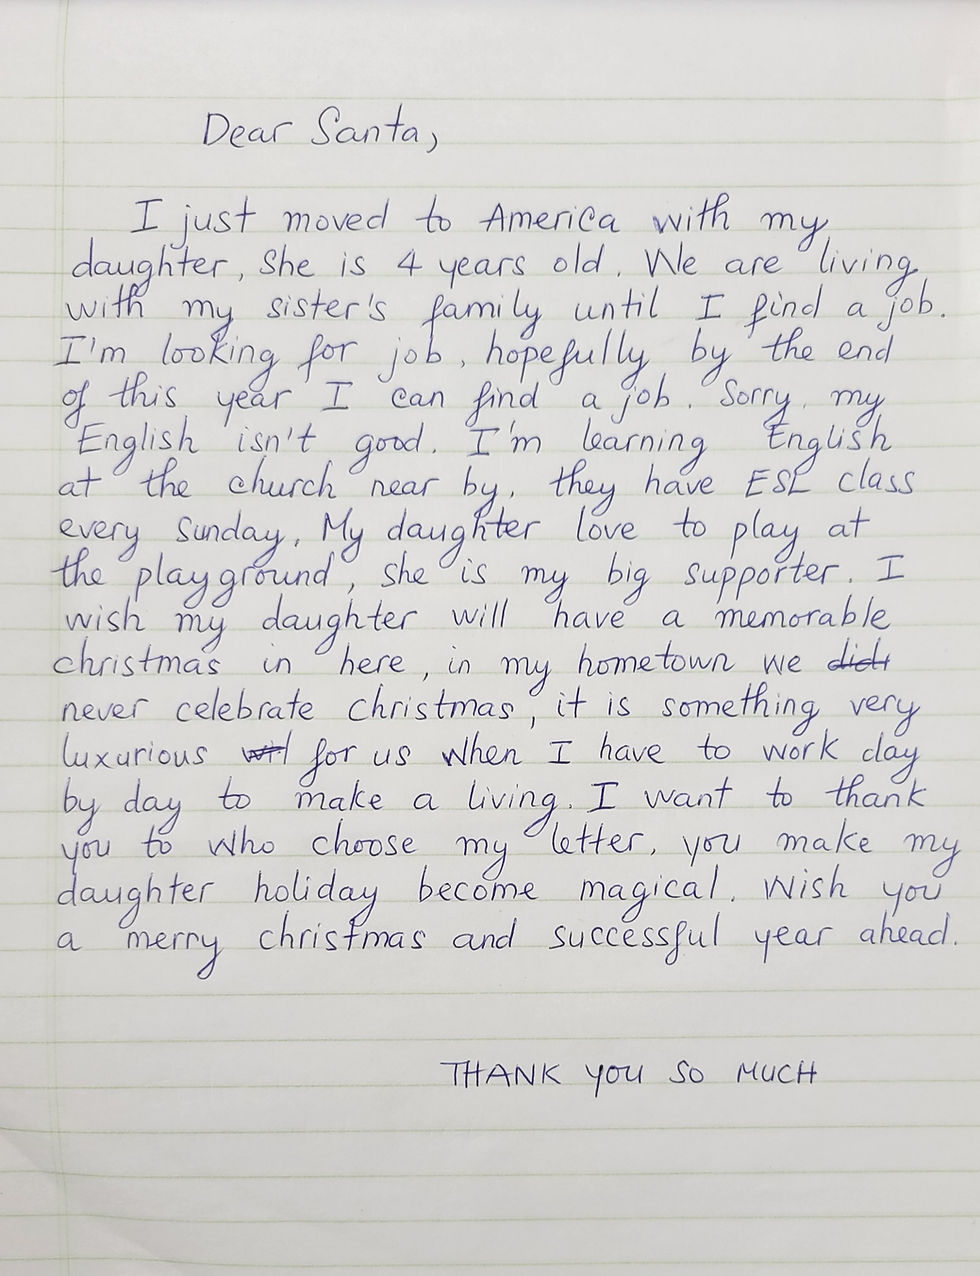 Dear Santa,
I just moved to America with my
daughter, She is 4 years old. We are living
with my sister's family until I find a job.
I'm looking for job, hopefully by the end
of this year I can find a job. Sorry, my
English isn't good. I'm learning English
at the church near by, they have ESL class
every Sunday, My daughter love to play at
the playground, she is my big supporter. I
wish my daughter will have a memorable
christmas in here, in my hometown we
never celebrate christmas, it is something very
luxurious for us when I have to work day
by day to make a living. I want to thank
you to who choose my letter, you make my
daughter holiday become magical. Wish you
a merry christmas and successful year ahead.
THANK YOU SO MUCH